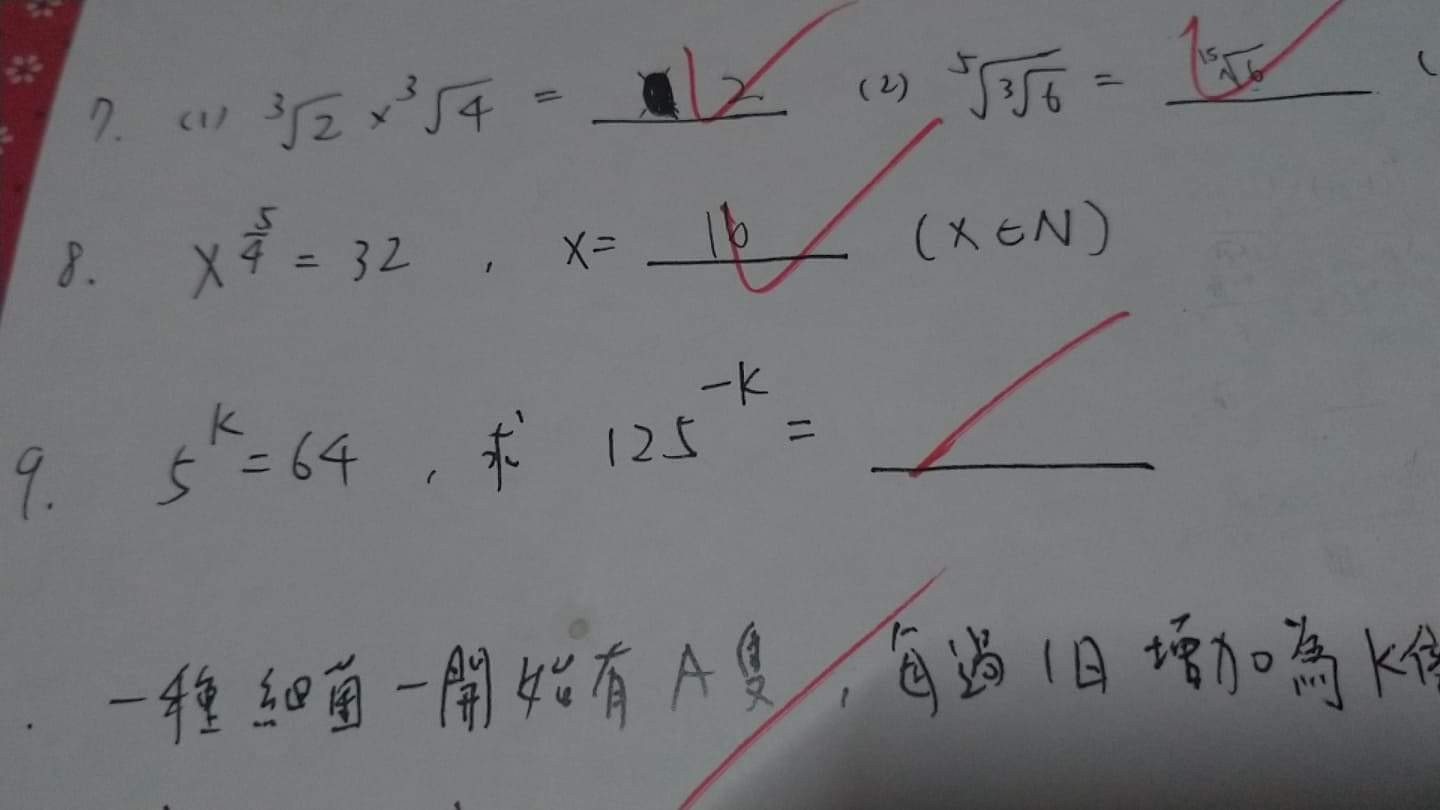 7. (1) ³√2 × ³√4 = 2 (2) ⁵√³√6 = ¹⁵√6 (
8. x^(5/4) = 32 , x = 16 (x ∈ N)
9. 5^k = 64 , 求 125^(-k) =
. 一種細菌一開始有A隻 , 每過1日增加為k倍